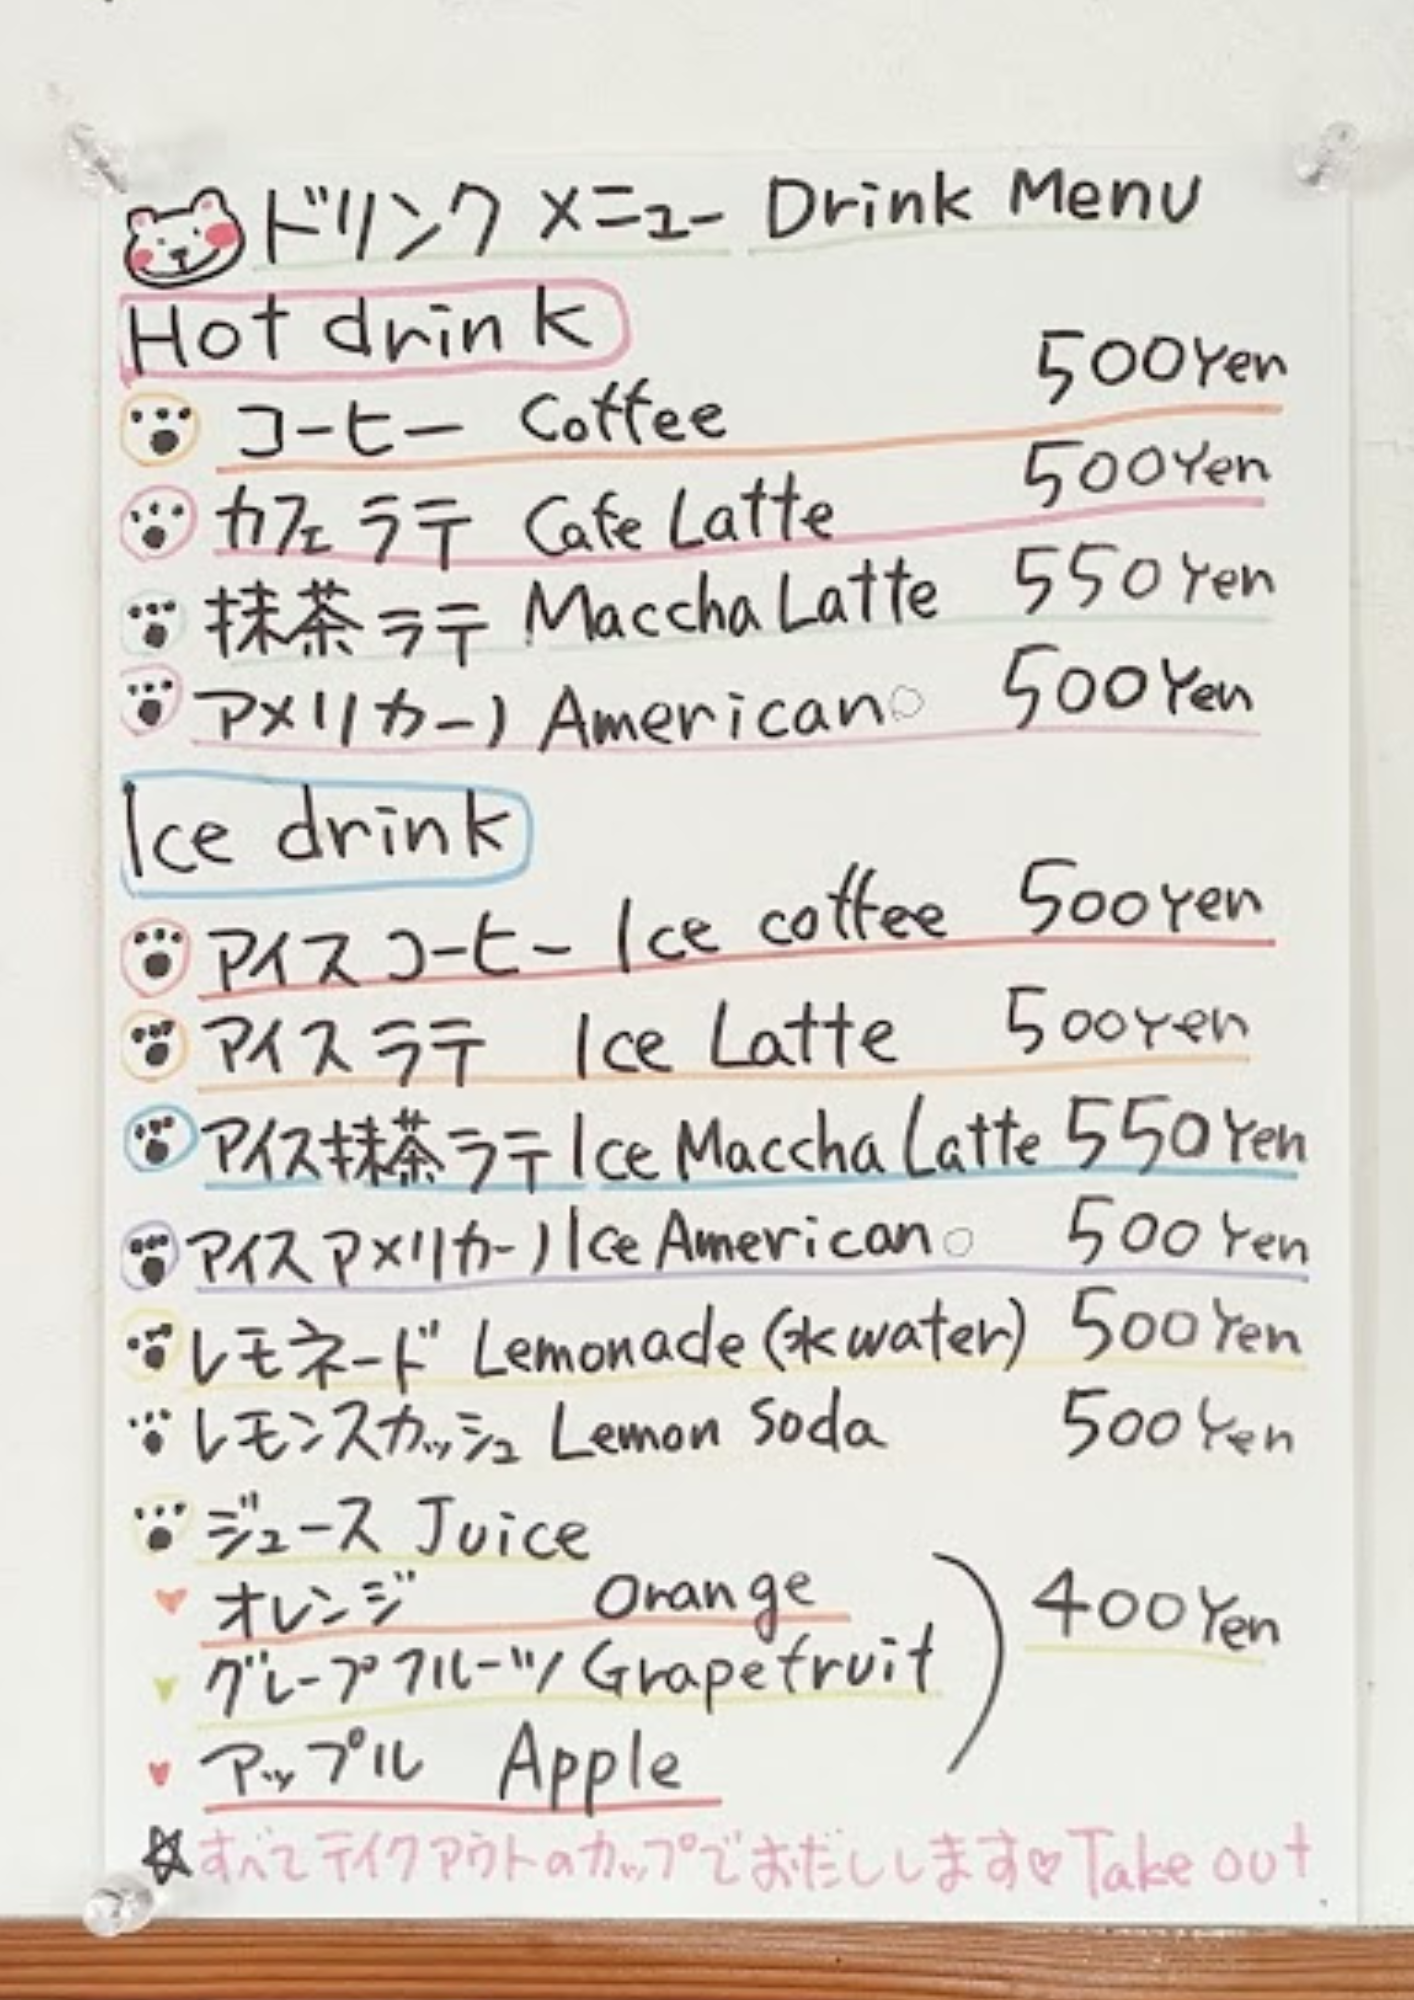 ドリンクメニュー Drink Menu
Hot drink
コーヒー Coffee 500Yen
カフェラテ Cafe Latte 500Yen
抹茶ラテ Maccha Latte 550Yen
アメリカーノ Americano 500Yen
Ice drink
アイスコーヒー Ice coffee 500Yen
アイスラテ Ice Latte 500Yen
アイス抹茶ラテ Ice Maccha Latte 550Yen
アイスアメリカーノ Ice Americano 500Yen
レモネード Lemonade (水water) 500Yen
レモンスカッシュ Lemon Soda 500Yen
ジュース Juice
オレンジ Orange
グレープフルーツ Grapefruit 400Yen
アップル Apple
☆すべてテイクアウトのカップでおだしします♡Take out